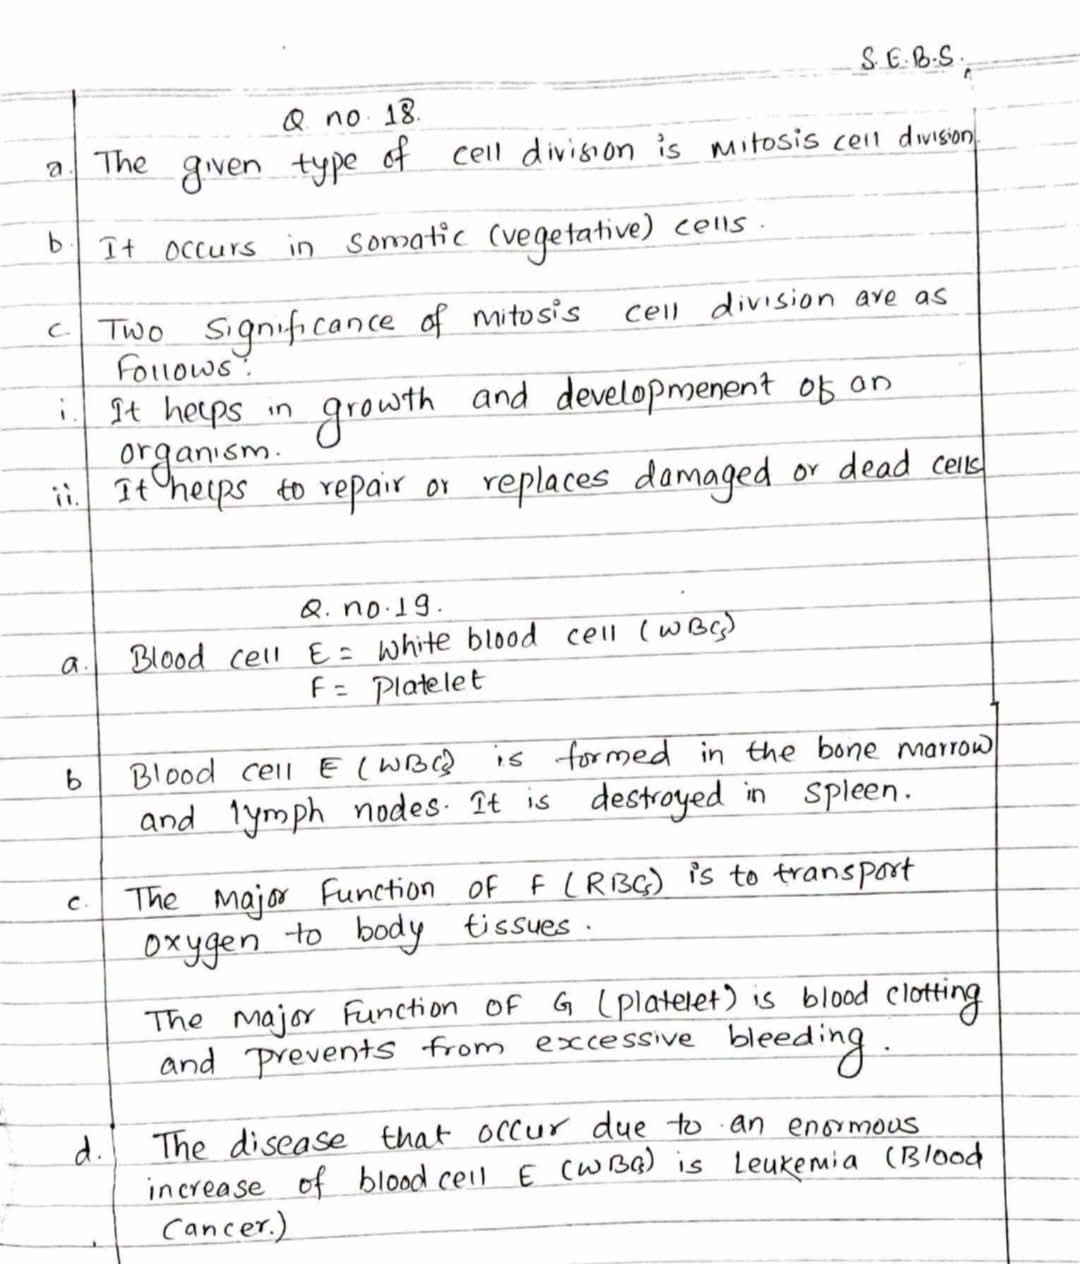 S.E.B.S.
Q no. 18.
a. The given type of cell division is mitosis cell division.
b. It occurs in somatic (vegetative) cells.
c. Two significance of mitosis cell division are as
Follows:
i. It helps in growth and developmenent of an
organism.
ii. It helps to repair or replaces damaged or dead cells
Q. no. 19.
a. Blood cell E = White blood cell (WBCs)
F = Platelet
b Blood cell E (WBCs) is formed in the bone marrow
and lymph nodes. It is destroyed in spleen.
c. The Major Function OF F (RBCs) is to transport
oxygen to body tissues.
The Major Function OF G (platelet) is blood clotting
and prevents from excessive bleeding.
d. The disease that occur due to an enormous
increase of blood cell E (WBCs) is Leukemia (Blood
Cancer.)